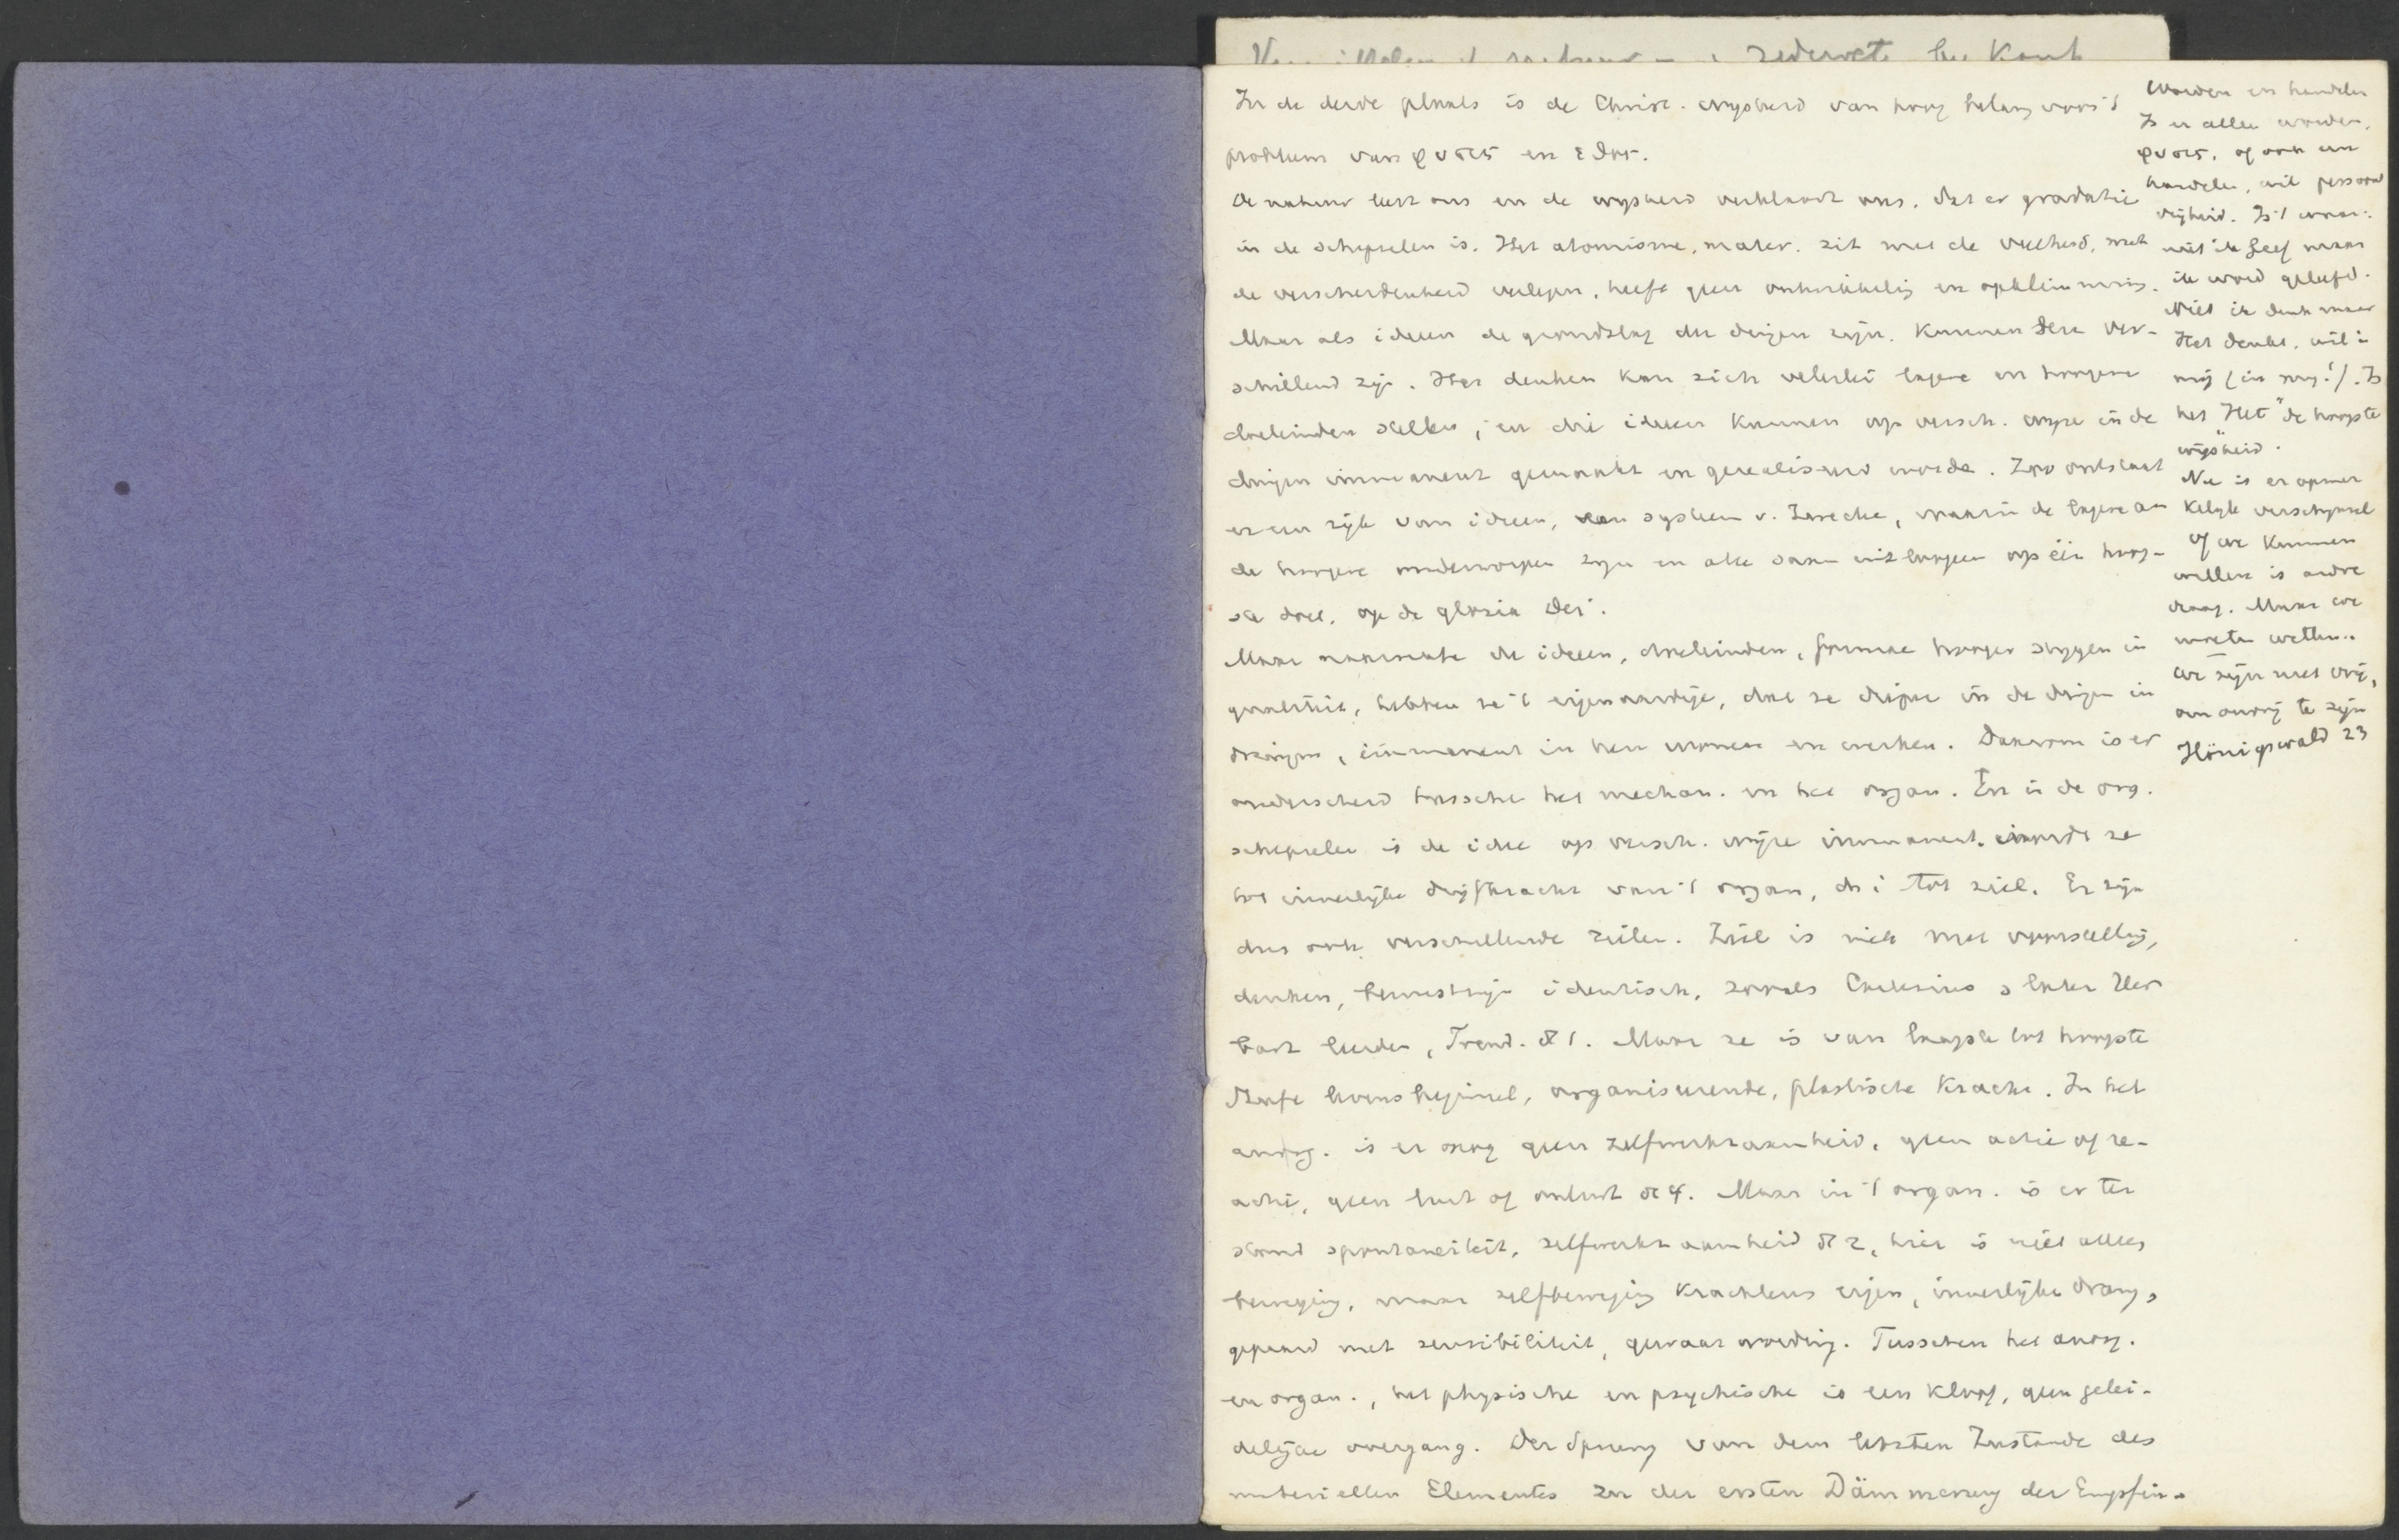 zedewet bij Kant
In de derde plaats is de Christ. wysheid van hoog belang voor 't
probleem van φυσις en εἶδος.
De natuur leert ons en de wysheid verklaart ons, dat er gradatie
in de schepselen is. Het atomisme, mater. zit met de veelheid, met
de verscheidenheid verlegen, heeft geen ontwikkeling en opklimming.
Maar als ideeen de grondslag der dingen zijn, kunnen deze ver-
schillend zijn. Het denken kan zich velerlei lagere en hoogere
doeleinden stellen, en die ideeen kunnen op versch. wyze in de
dingen immanent gemaakt en gerealiseerd worden. Zoo ontstaat
er een rijk van ideeen, een systeem v. Zwecke, waarin de lagere aan
de hoogere onderworpen zyn en alle saam uitloopen op één hoog-
ste doel, op de gloria Dei.
Maar naarmate de ideeen, doeleinden, formae hooger stygen in
qualiteit, hebben ze 't eigenaardige, dat ze dieper in de dingen in
dringen, immanent in hen wonen en werken. Daarom is er
onderscheid tusschen het mechan. en het organ. En in de org.
schepselen is de idee op versch. wijze immanent, wordt ze
tot innerlijke drijfkracht van 't organ, d. i. tot ziel. Er zijn
dus ook verschillende zielen. Ziel is niet met voorstelling,
denken, bewustzijn identisch, zooals Cartesius & later Her
bart leerden, Trend. Maar ze is van laagste tot hoogste
levensbeginsel, organiseerende, plastische Kracht. In het
anorg. is er nog geen zelfwerkzaamheid, geen actie of re-
actie, geen lust of onlust Maar in 't organ. is er ter
stond spontaneiteit, zelfwerkzaamheid hier is niet alles
beweging, maar zelfbeweging krachtens eigen, innerlijke drang,
gepaard met sensibiliteit, gewaarwording. Tusschen het anorg.
en organ., het physische en psychische is een kloof, geen gelei-
delijke overgang. Der Sprung von dem letzten Zustande des
materiellen Elementes zu der ersten Dämmerung der Empfin-
Worden en handelen
Is er alleen worden,
φυσις, of ook een
handelen, wil persoon
vrijheid. Is 't waar:
niet ik leef maar
ik word geleefd.
Niet ik denk maar
Het denkt, wil in
mij (in mij!). Is
het "Het" de hoogste
wijsheid.
Nu is er opmer
kelyk verschynsel
of we kunnen
willen is andre
vraag. Maar we
moeten willen.
we zijn niet vrij,
om onvrij te zijn
Hönigswald 23